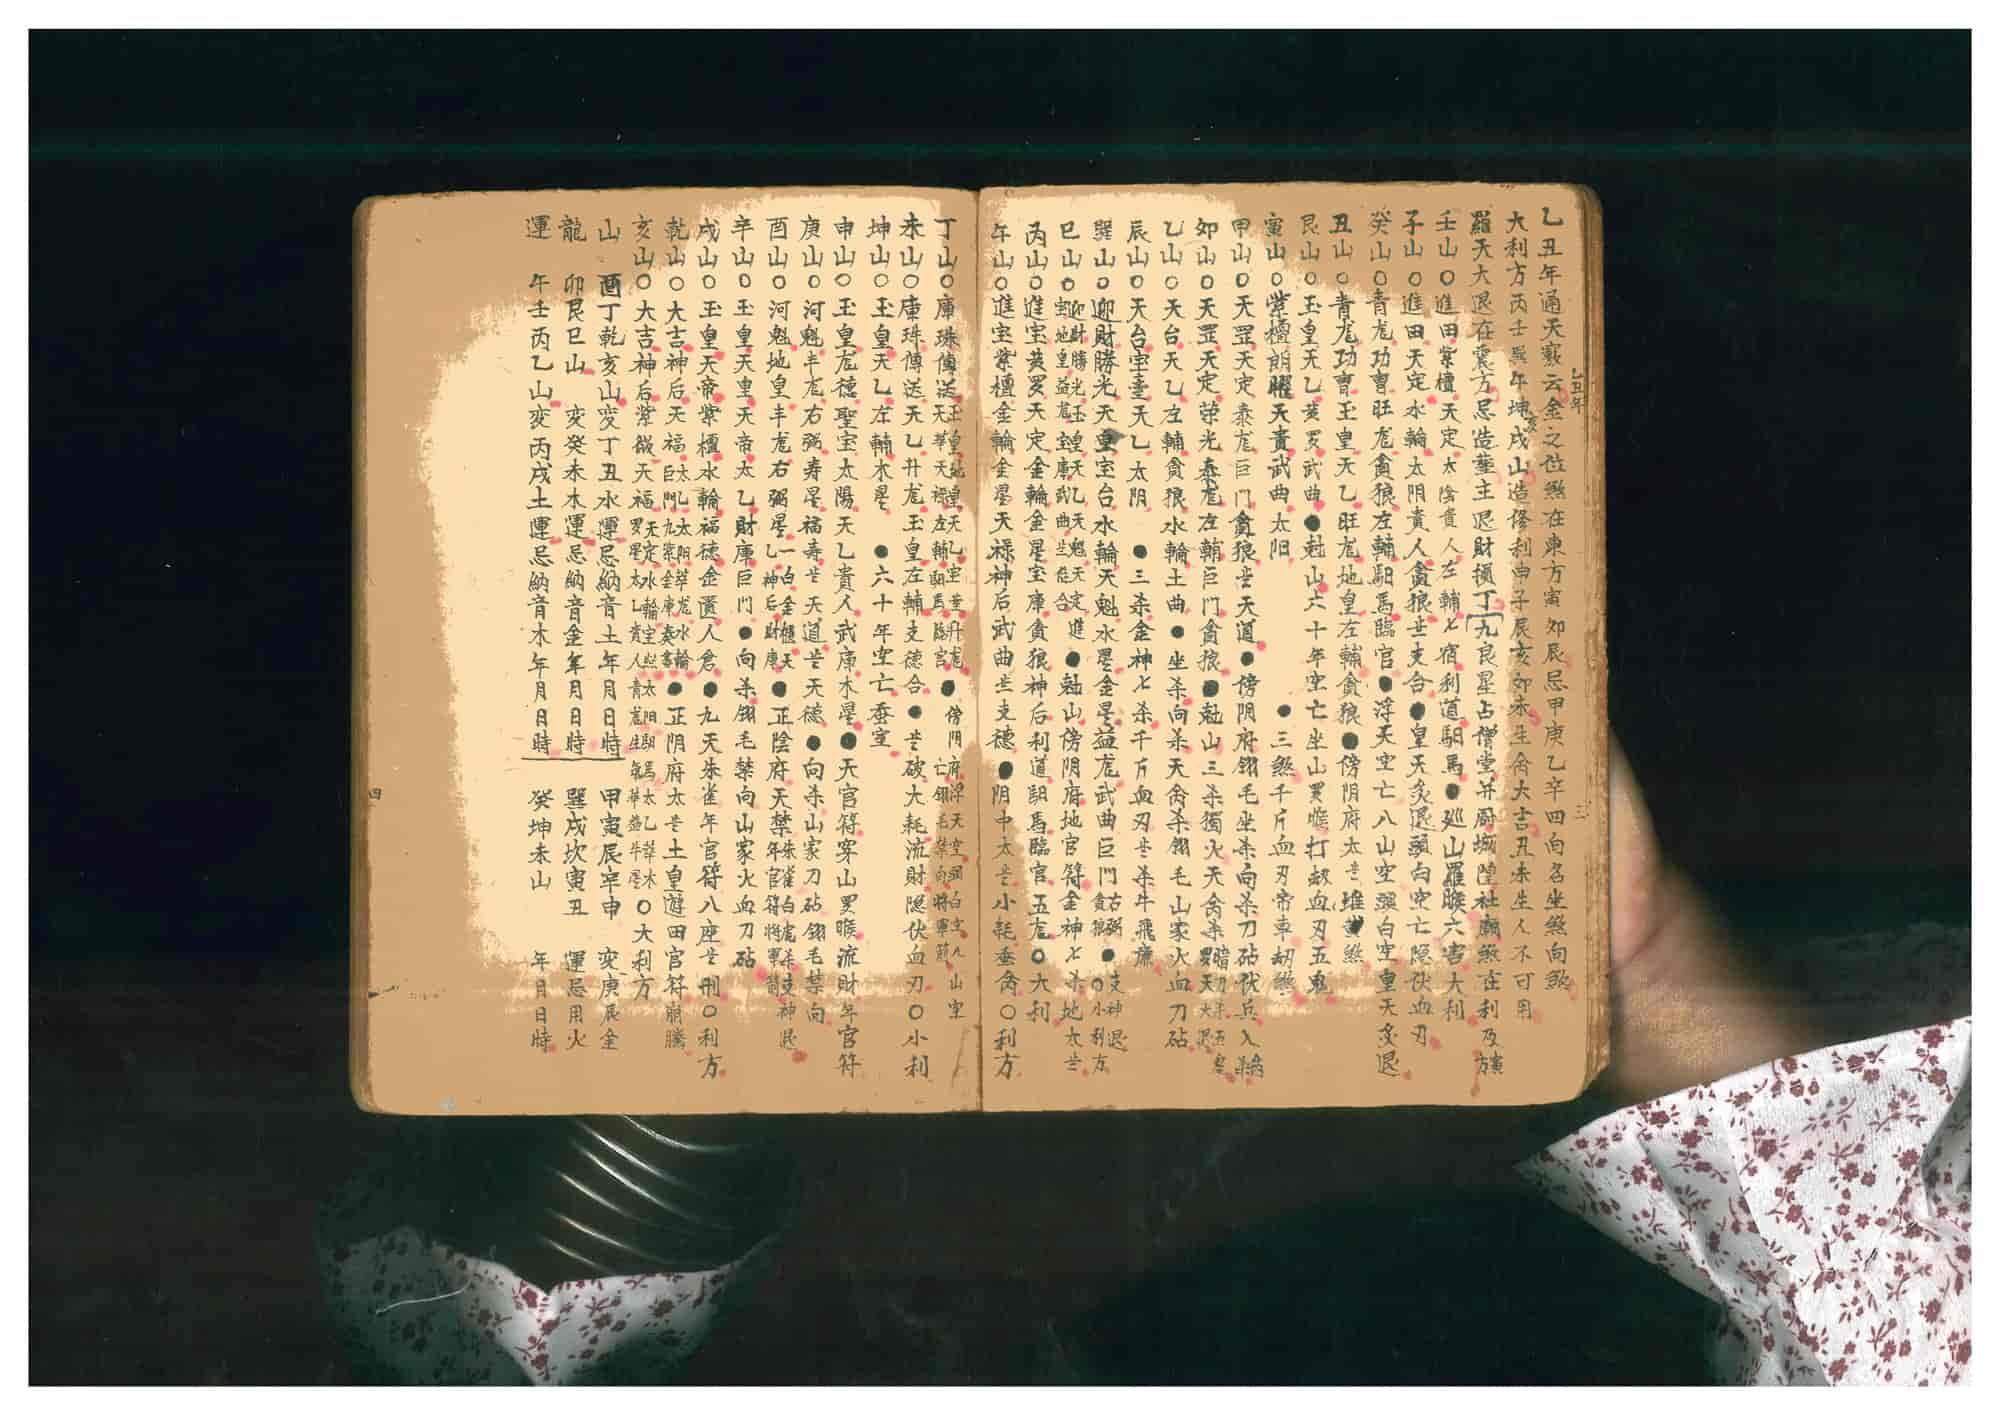 乙丑年通天竅云金之位煞在東方寅卯辰忌甲庚乙辛四向名坐煞向煞
大利方丙壬巽午坤戌山造修利申子辰亥卯未生命大吉丑未生人不可用
羅天大退在震方忌造塟主退財損丁九良星占僧堂并厨城隍社廟煞在利及寅方
壬山○進田紫檀天定太陰貴人左輔七宿利道馹馬●巡山羅睺六害大利
子山○進田天定水輪太阴貴人貪狼歲支合●皇天炙退頭白空亡隠伏血刃
癸山○青龙功曹旺龙貪狼左輔馹馬臨官●浮天空亡八山空頭白空皇天炙退
丑山○青龙功曹玉皇天乙旺龙地皇左輔貪狼●傍阴府太歲堆黄煞
艮山○玉皇天乙黄罗武曲●尅山六十年空亡坐山罗睺打刼血刃五鬼
寅山○紫檀朗曜天貴武曲太阳●三煞千斤血刃帝車刼煞
甲山○天罡天定泰龙巨门貪狼歲天道●傍阴府翎毛坐杀向杀刀砧伏兵入
卯山○天罡天定荣光泰龙左輔巨门貪狼●尅山三杀獨火天禽杀
乙山○天台天乙左輔貪狼水輪土曲●坐杀向杀天禽杀翎毛山家火血刀砧
辰山○天台宝臺天乙太阴●三杀金神七杀千斤血刃歲杀牛飛廉
巽山○迎財勝光天皇宝台水輪天魁水星金星益龙武曲巨门右弼貪狼●支神退○小利方
巳山○迎財勝光玉皇天乙天魁天定進宝地皇益龙宝庫武曲歲位合●尅山傍阴府地官符金神七杀地太歲
丙山○進宝黄罗天定金輪金星宝庫貪狼神后利道馹馬臨官五龙○大利
午山○進宝紫檀金輪金星天禄神后武曲歲支德●阴中太歲小耗垂禽○利方
丁山○庫珠傳送玉皇地皇天乙宝臺升龙天華天禄左輔馹馬臨官●傍阴府浮天空頭白空八山空亡翎毛禁向將軍箭
未山○庫珠傳送天乙升龙玉皇左輔支德合●歲破大耗流財隠伏血刃○小利
坤山○玉皇天乙左輔木星●六十年空亡蚕室
申山○玉皇龙德聖宝太陽天乙貴人武庫木星●天官符穿山罗睺流財年官符
庚山○河魁丰龙右弼寿星福寿歲天道歲天德●向杀山家刀砧翎毛禁向
酉山○河魁地皇丰龙右弼星一白金櫃天乙神后財庫●正陰府天禁朱雀白虎杀支神退年官符將軍箭
辛山○玉皇天皇天帝太乙財庫巨门●向杀翎毛禁向山家火血刀砧
戌山○玉皇天帝紫檀水輪福德金匱人倉●九天朱雀年官符八座歲刑○利方
乾山○大吉神后天福太乙太阳萃龙水輪巨門九紫金庫奏書●正阴府太歲土皇遊田官符崩騰
亥山○大吉神后紫微天福天定水輪宝台太阳馹馬太乙萃木罗星太乙貴人青龙生氣華益牛星○大利方
山 酉丁乾亥山変丁丑水運忌納音土年月日時 甲寅辰辛申 変庚辰金
龍 卯艮巳山 変癸未木運忌納音金年月日時 巽戌坎寅丑 運忌用火
運 午壬丙乙山変丙戌土運忌納音木年月日時 癸坤未山 年月日時
乙丑年
三
四